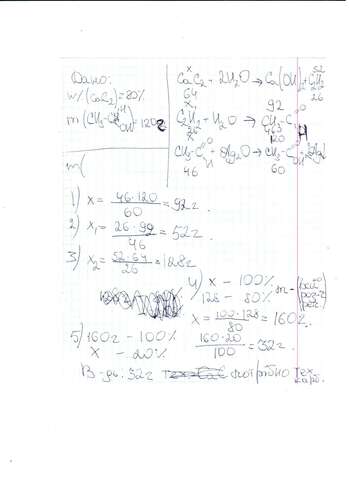 Дано:
w/(CaC2)=80%
m(CH3-C OH)=120г
m(
x
CaC2 + 2H2O → Ca(OH)2 + C2H2
64
26
x1
92
C2H2 + H2O → CH3-C
26
120
CH3-C + Ag2O → CH3-C + 2Ag↓
46
60
1) x = 46·120/60 = 92г.
2) x1 = 26·92/46 = 52г.
3) x2 = 52·64/26 = 128г
4) x – 100%
128 – 80%
x = 100·128/80 = 160г.
5) 160г – 100%
x – 20%
160·20/100 = 32г.
В-дь. 32г потрібно тех.